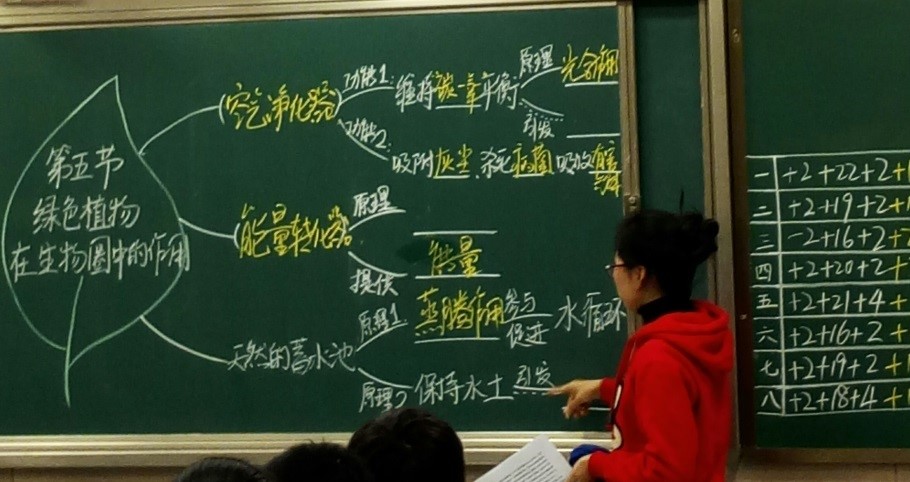 第五节
绿色植物
在生物圈中的作用
空气净化器
功能1:
维持碳-氧平衡
原理
光合作用
引发
功能2:
吸附灰尘、杀死病菌 吸收有害
气体
能量转化器
原理
提供
能量
天然的蓄水池
原理1
蒸腾作用
参与
促进
水循环
原理2
保持水土
引发
一 +2+22+2+
二 +2+19+2+
三 -2+16+2+2
四 +2+20+2+
五 +2+21+4+
六 +2+16+2+
七 +2+19+2+
八 +2+18+4+